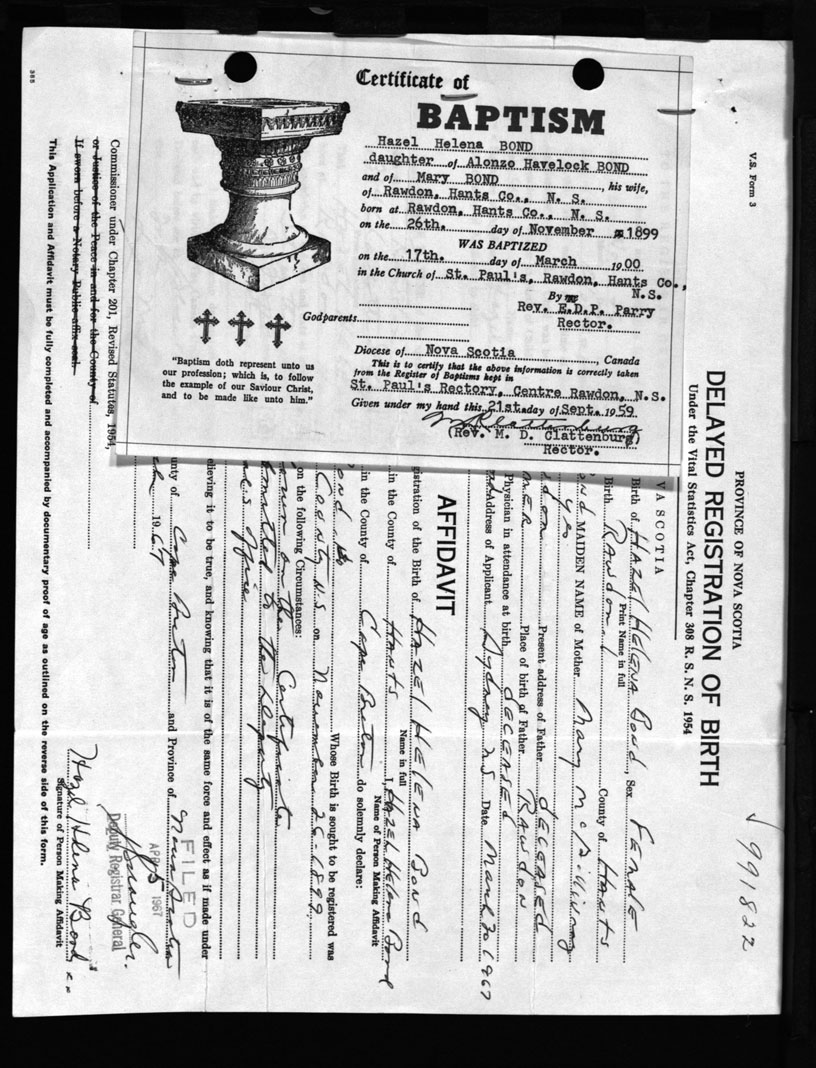 Certificate of
BAPTISM
Hazel Helena BOND
daughter of Alonzo Havelock BOND
and of Mary BOND, his wife,
of Rawdon, Hants Co., N. S.
born at Rawdon, Hants Co., N. S.
on the 26th. day of November 1899
WAS BAPTIZED
on the 17th. day of March 1900
in the Church of St. Paul's, Rawdon, Hants Co.,
N.S.
By Rev. E.D.P. Parry
Rector.
Godparents
Diocese of Nova Scotia, Canada
This is to certify that the above information is correctly taken
from the Register of Baptisms kept in
St. Paul's Rectory, Centre Rawdon, N.S.
Given under my hand this 21st. day of Sept. 1959
(Rev. M. D. Clattenburg)
Rector.
"Baptism doth represent unto us
our profession; which is, to follow
the example of our Saviour Christ,
and to be made like unto him."
V.S. Form 3
991822
PROVINCE OF NOVA SCOTIA
DELAYED REGISTRATION OF BIRTH
Under the Vital Statistics Act, Chapter 308 R. S. N. S. 1954
VA SCOTIA
Birth of HAZEL HELENA Bond, Sex FEMALE
Print Name in full
Birth Rawdon County of HANTS
MAIDEN NAME of Mother Mary
yes
Present address of Father DECEASED
Place of birth of Father RAWDON
Physician in attendance at birth DECEASED
Address of Applicant Sydney NS Date March 30 1967
AFFIDAVIT
istration of the Birth of HAZEL HELENA Bond
Name in full
in the County of HANTS I, HAZEL HELENA Bond
Name of Person Making Affidavit
in the County of Cape Breton do solemnly declare:
Whose Birth is sought to be registered was
County N.S on November 26-1899
on the following Circumstances:
on the Certificate
submitted to the Deputy
office
elieving it to be true, and knowing that it is of the same force and effect as if made under
unty of Cape Breton and Province of Nova Scotia
1967
FILED
APR 5 1967
Deputy Registrar General
Commissioner under Chapter 201, Revised Statutes, 1954,
or Justice of the Peace in and for the County of
If sworn before a Notary Public affix seal.
Hazel Helena Bond
Signature of Person Making Affidavit
This Application and Affidavit must be fully completed and accompanied by documentary proof of age as outlined on the reverse side of this form.
385